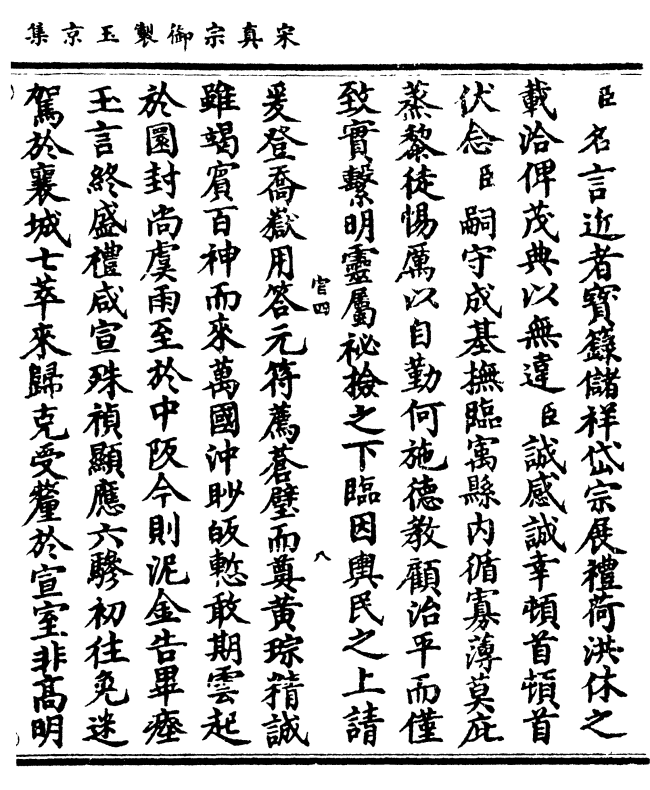 宋真宗御製玉京集
臣名言近者寶籙儲祥岱宗展禮荷洪休之
載洽俾茂典以無違臣誠感誠幸頓首頓首
伏念臣嗣守成基撫臨寓縣內循寡薄莫庇
蒸黎徒惕厲以自勤何施德教顧治平而僅
致實繫明靈屬祕撿之下臨因輿民之上請
官四
八
爰登喬嶽用答元符薦蒼璧而奠黃琮精誠
雖竭賓百神而來萬國沖眇皈慙敢期雲起
於圜封尚虞雨至於中阪今則泥金告畢瘞
玉言終盛禮咸宣殊禎顯應六驂初往免迷
駕於襄城七萃來歸克受釐於宣室非高明